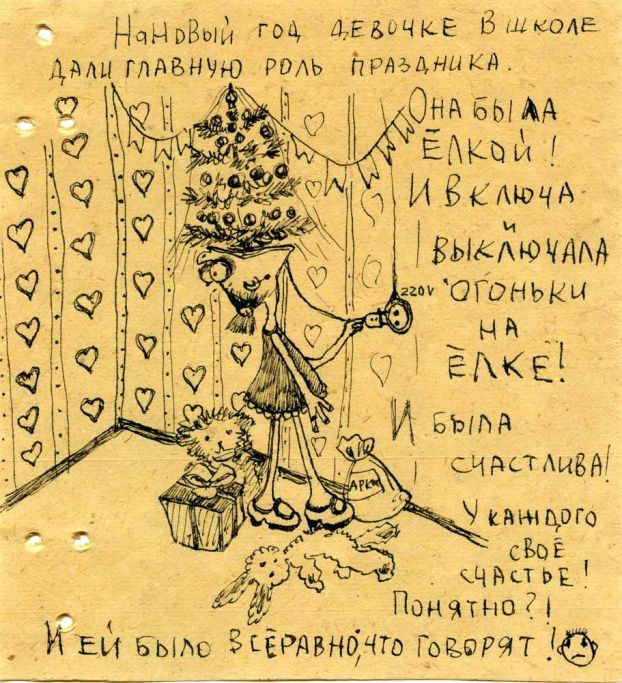 НАНОВЫЙ ГОД ДЕВОЧКЕ В ШКОЛЕ
ДАЛИ ГЛАВНУЮ РОЛЬ ПРАЗДНИКА.
ОНА БЫЛА
ЁЛКОЙ!
И ВКЛЮЧА
И
ВЫКЛЮЧАЛА
220V
ОГОНЬКИ
НА
ЁЛКЕ!
И БЫЛА
СЧАСТЛИВА!
У КАЖДОГО
СВОЁ
СЧАСТЬЕ!
ПОНЯТНО?!
И ЕЙ БЫЛО ВСЁРАВНО, ЧТО ГОВОРЯТ!